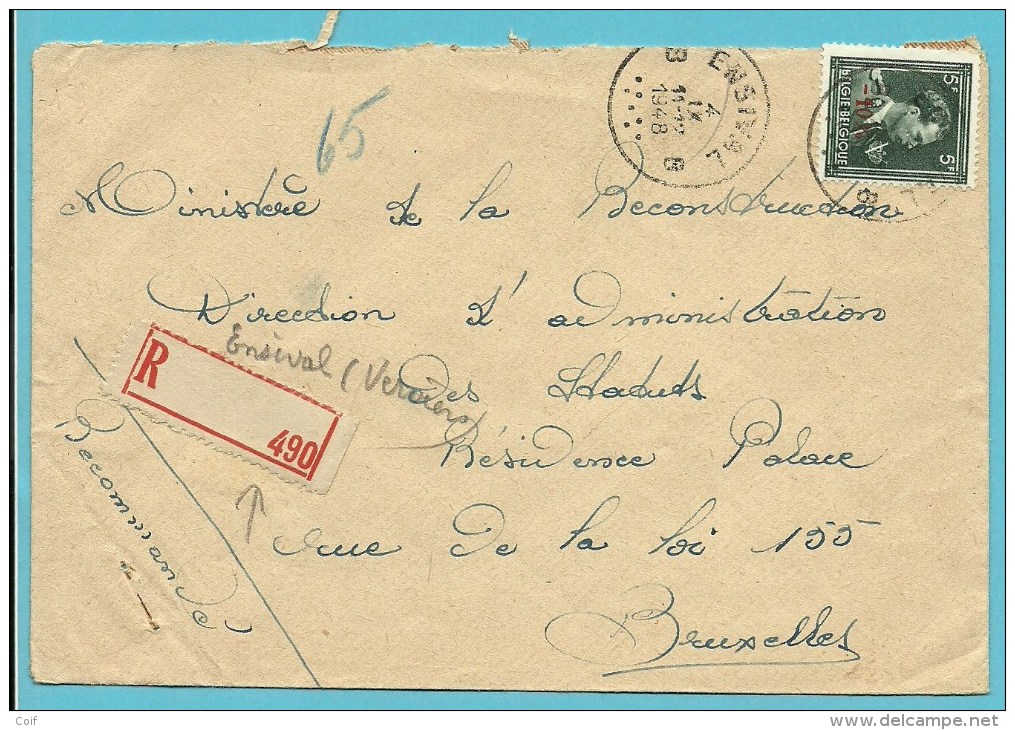 65
ENSIVAL
B B
4
IX
1948
5F 5F
BELGIE-BELGIQUE
-10%
Ministère de la Reconstruction
Direction d'administration
des Statuts
Résidence Palace
rue de la loi 155
Bruxelles
R
490
Ensival (Verviers)
Recommandé
Coif
delcampe.net